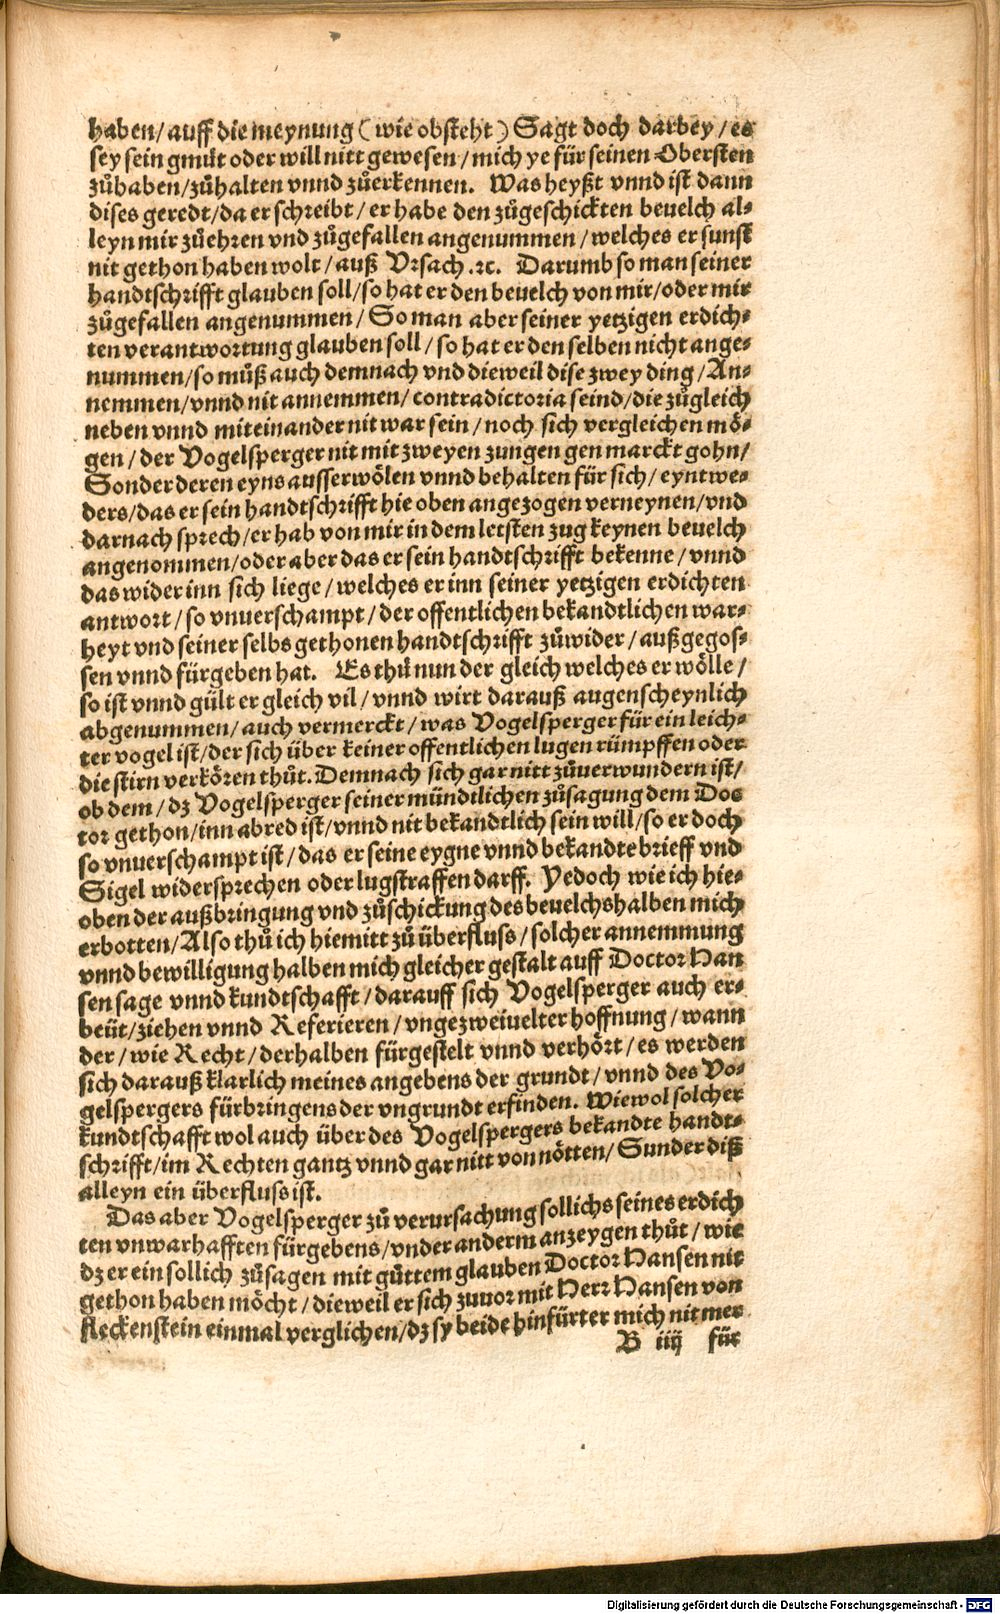 haben/ auff die meynung ( wie obsteht ) Sagt doch darbey / es
sey sein gmüt oder will nitt gewesen / mich ye für seinen Obersten
zůhaben/ zůhalten vnnd zůerkennen. Was heyßt vnnd ist dann
dises geredt/ da er schreibt / er habe den zůgeschickten beuelch al⸗
leyn mir zůehren vnd zůgefallen angenummen / welches er sunst
nit gethon haben wolt / auß Vrsach .ꝛc. Darumb so man seiner
handtschrifft glauben soll/ so hat er den beuelch von mir/ oder mir
zůgefallen angenummen / So man aber seiner yetzigen erdich⸗
ten verantwortung glauben soll / so hat er den selben nicht ange⸗
nummen/ so můß auch demnach vnd dieweil dise zwey ding / An⸗
nemmen/ vnnd nit annemmen/ contradictoria seind/ die zůgleich
neben vnnd miteinander nit war sein / noch sich vergleichen mö⸗
gen / der Vogelsperger nit mit zweyen zungen gen marckt gohn/
Sonder deren eyns ausserwölen vnnd behalten für sich / eyntwe⸗
ders/ das er sein handtschrifft hie oben angezogen verneynen/ vnd
darnach sprech/ er hab von mir in dem letsten zug keynen beuelch
angenommen/ oder aber das er sein handtschrifft bekenne / vnnd
das wider inn sich liege / welches er inn seiner yetzigen erdichten
antwort / so vnuerschampt / der offentlichen bekandtlichen war⸗
heyt vnd seiner selbs gethonen handtschrifft zůwider / außgegos⸗
sen vnnd fürgeben hat. Es thů nun der gleich welches er wölle /
so ist vnnd gült er gleich vil / vnnd wirt darauß augenscheynlich
abgenummen/ auch vermerckt / was Vogelsperger für ein leich⸗
ter vogel ist/ der sich über keiner offentlichen lugen rümpffen oder
die stirn verkören thůt. Demnach sich gar nitt zůuerwundern ist/
ob dem / dz Vogelsperger seiner mündtlichen zůsagung dem Doc
tor gethon/ inn abred ist/ vnnd nit bekandtlich sein will/ so er doch
so vnuerschampt ist / das er seine eygne vnnd bekandte brieff vnd
Sigel widersprechen oder lugstraffen darff. Yedoch wie ich hie⸗
oben der außbringung vnd zůschickung des beuelchs halben mich
erbotten/ Also thů ich hiemitt zů überfluss / solcher annemmung
vnnd bewilligung halben mich gleicher gestalt auff Doctor Han
sen sage vnnd kundtschafft / darauff sich Vogelsperger auch er⸗
beüt/ ziehen vnnd Referieren / vngezweiuelter hoffnung / wann
der / wie Recht / derhalben fürgestelt vnnd verhört / es werden
sich darauß klarlich meines angebens der grundt / vnnd des Vo⸗
gelspergers fürbringens der vngrundt erfinden. Wiewol solcher
kundtschafft wol auch über des Vogelspergers bekandte handt⸗
schrifft / im Rechten gantz vnnd gar nitt von nötten / Sunder diß
alleyn ein überfluss ist.
Das aber Vogelsperger zů verursachung sollichs seines erdich
ten vnwarhafften fürgebens / vnder anderm anzeygen thůt / wie
dz er ein sollich zůsagen mit gůttem glauben Doctor Hansen nit
gethon haben möcht / dieweil er sich zuuor mit Herr Hansen von
fleckenstein einmal verglichen/ dz sy beide hinfürter mich nit mer
B iiij für
Digitalisierung gefördert durch die Deutsche Forschungsgemeinschaft - DFG